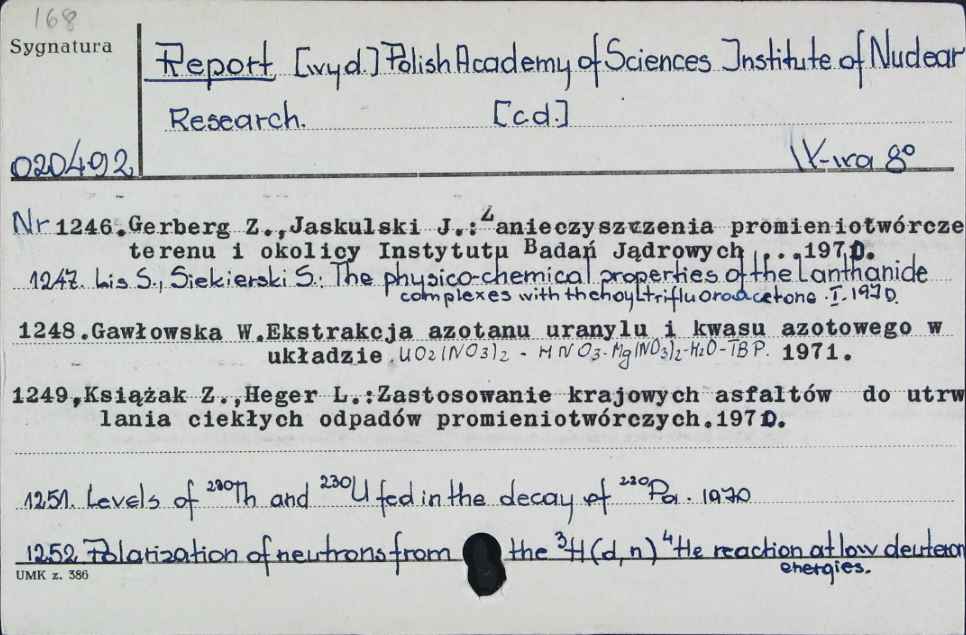 168
Sygnatura
Report [wyd.] Polish Academy of Sciences Institute of Nuclear
Research. [c.d.]
020492 IV-wa 8°
Nr 1246.Gerberg Z.,Jaskulski J.: Zanieczyszczenia promieniotwórcze
terenu i okolicy Instytutu Badań Jądrowych ... 1970.
1247. Lis S., Siekierski S.: The physico-chemical properties of the lanthanide
complexes with thenoyltrifluoroacetone. I. 1970.
1248.Gawłowska W.Ekstrakcja azotanu uranylu i kwasu azotowego w
układzie UO2(NO3)2 - HNO3-Mg(NO3)2-H2O-TBP. 1971.
1249,Książak Z.,Heger L.:Zastosowanie krajowych asfaltów do utrw
lania ciekłych odpadów promieniotwórczych.1970.
1251. Levels of 230Th and 230U fed in the decay of 230Pa. 1970
1252 Polarization of neutrons from the 3H(d,n) 4He reaction at low deuteron
energies.
UMK z. 386